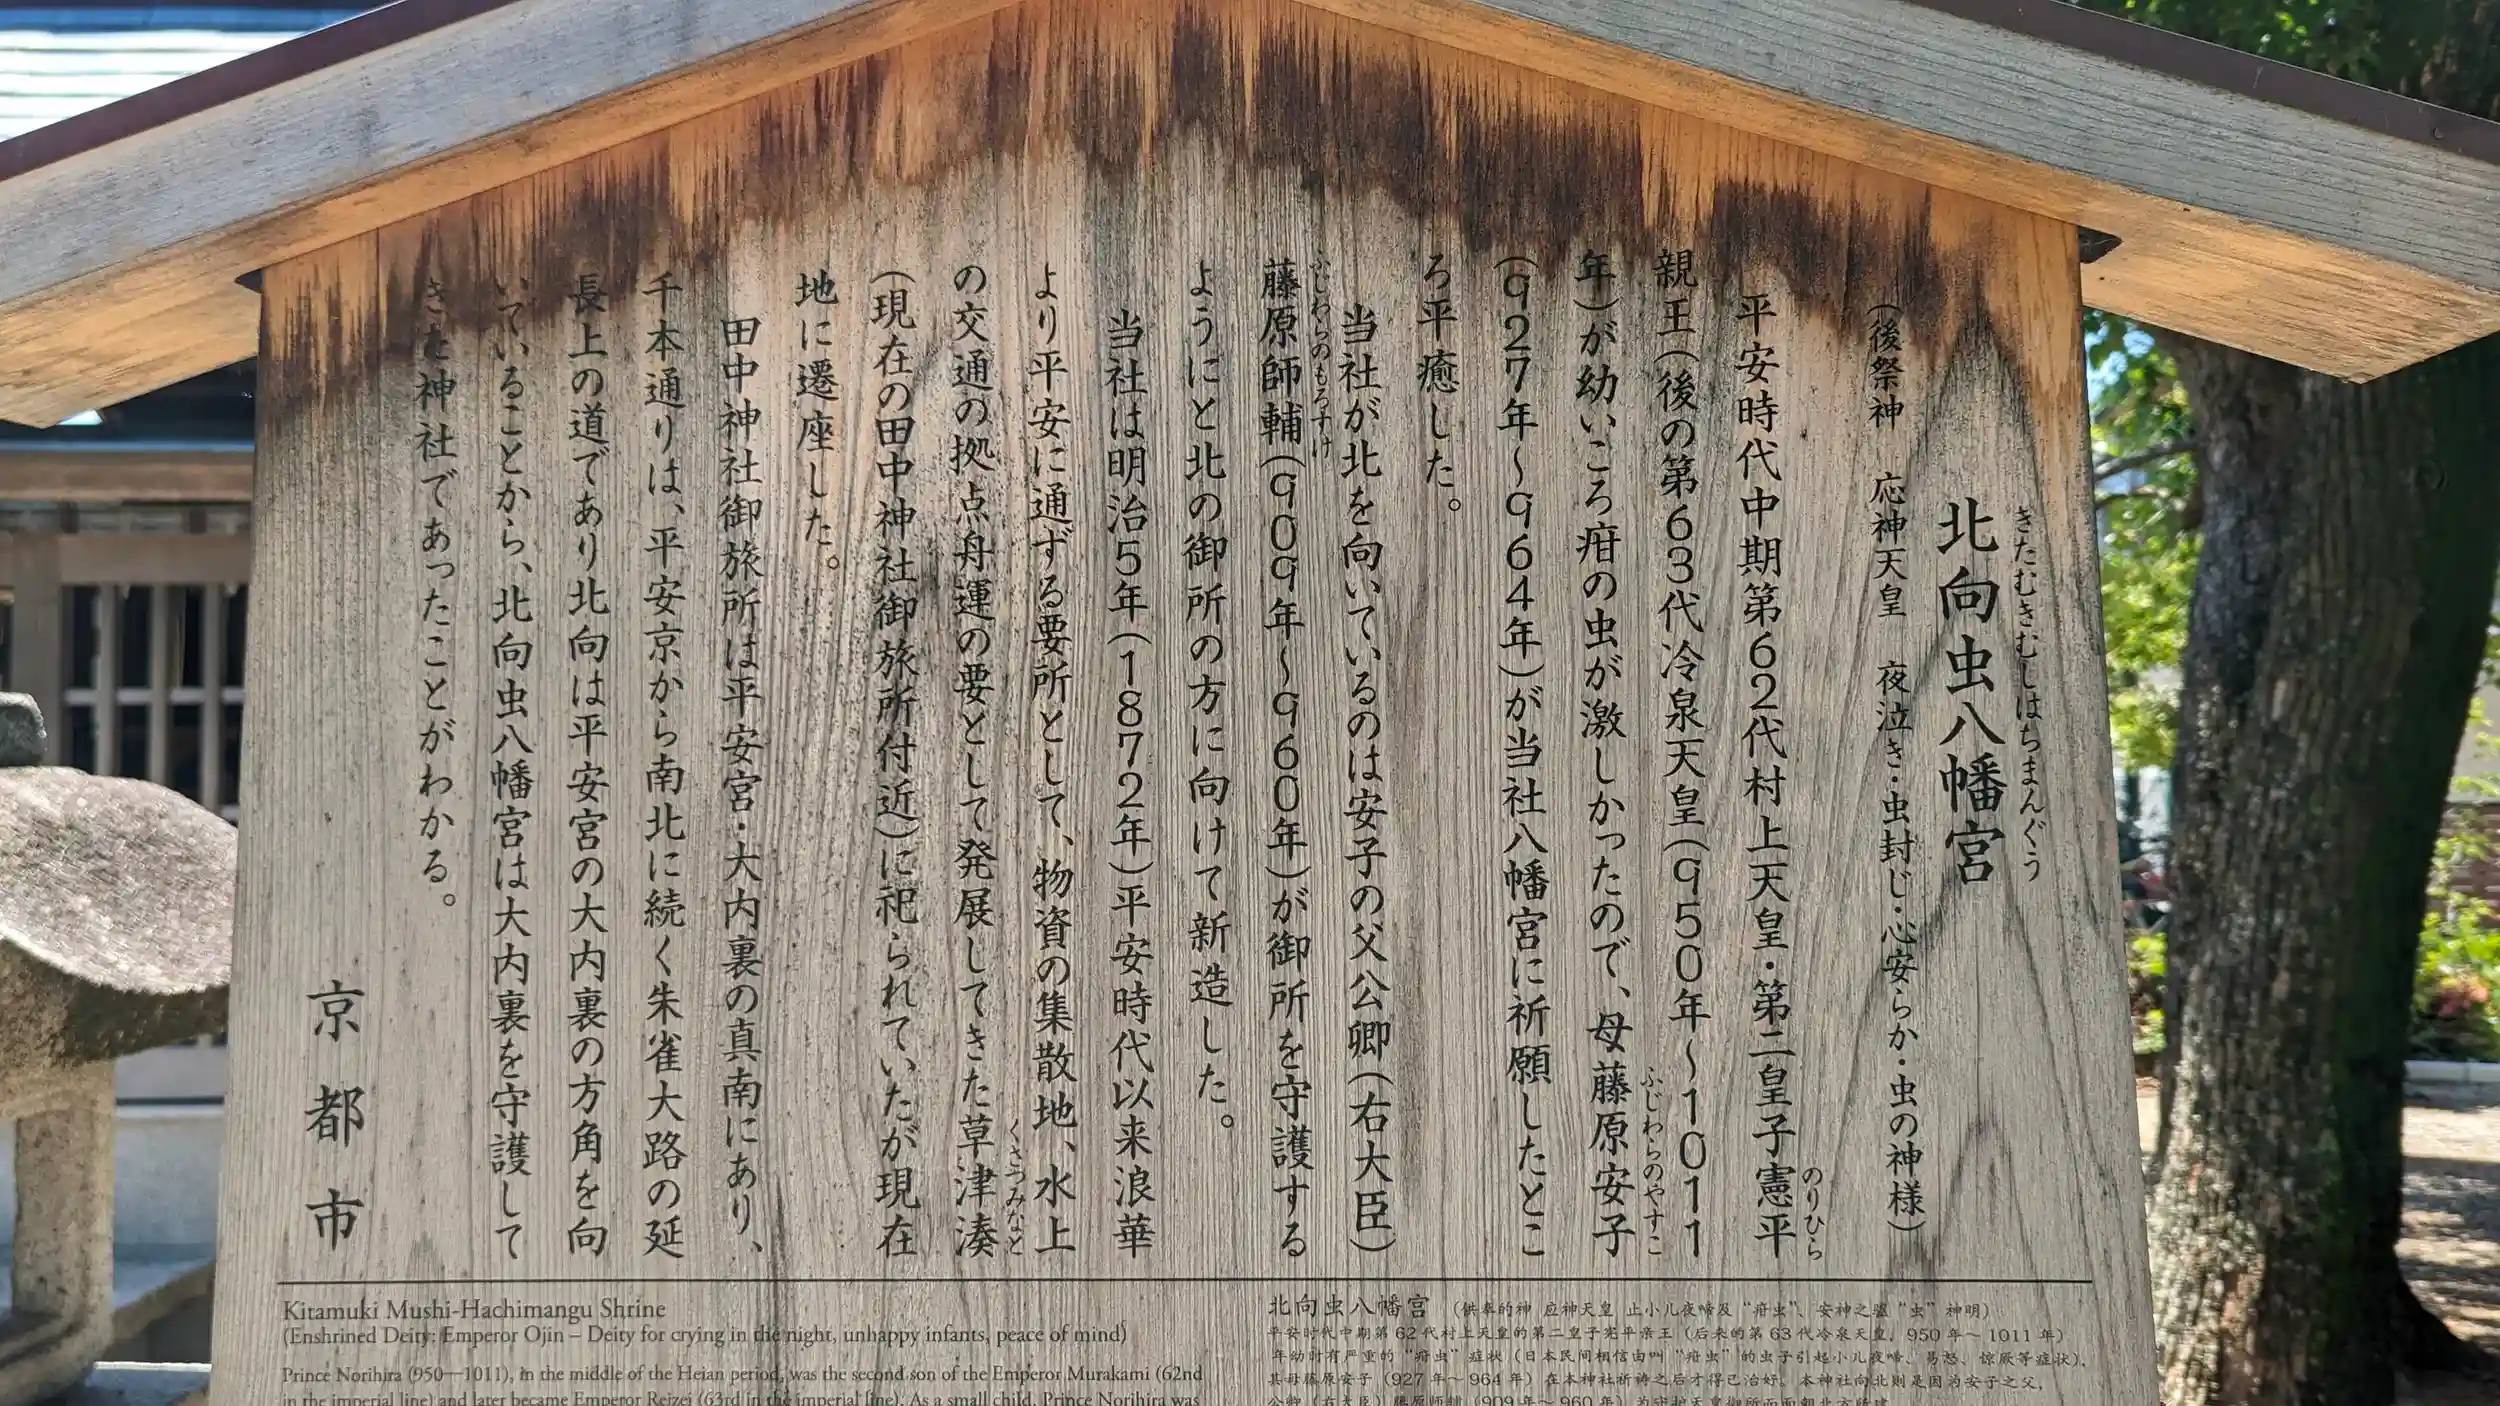 きたむきむしはちまんぐう
北向虫八幡宮
(後祭神 応神天皇 夜泣き・虫封じ・心安らか・虫の神様)
平安時代中期第62代村上天皇・第二皇子憲平
のりひら
親王(後の第63代冷泉天皇(950年～1011
年)が幼いころ疳の虫が激しかったので、母藤原安子
ふじわらのやすこ
(927年～964年)が当社八幡宮に祈願したとこ
ろ平癒した。
当社が北を向いているのは安子の父公卿(右大臣)
藤原師輔(909年～960年)が御所を守護する
ふじわらのもろすけ
ようにと北の御所の方に向けて新造した。
当社は明治5年(1872年)平安時代以来浪華
より平安に通ずる要所として、物資の集散地、水上
の交通の拠点舟運の要として発展してきた草津湊
くさつみなと
(現在の田中神社御旅所付近)に祀られていたが現在
地に遷座した。
田中神社御旅所は平安宮・大内裏の真南にあり、
千本通りは、平安京から南北に続く朱雀大路の延
長上の道であり北向は平安宮の大内裏の方角を向
いていることから、北向虫八幡宮は大内裏を守護して
きた神社であったことがわかる。
京都市
Kitamuki Mushi-Hachimangu Shrine
(Enshrined Deity: Emperor Ojin – Deity for crying in the night, unhappy infants, peace of mind)
Prince Norihira (950—1011), in the middle of the Heian period, was the second son of the Emperor Murakami (62nd
in the imperial line) and later became Emperor Reizei (63rd in the imperial line). As a small child, Prince Norihira was
北向虫八幡宮 (供奉的神 应神天皇 止小儿夜啼及“疳虫”、安神之驱“虫”神明)
平安时代中期第62代村上天皇的第二皇子宪平亲王(后来的第63代冷泉天皇，950年～1011年)
年幼时有严重的“疳虫”症状(日本民间相信由叫“疳虫”的虫子引起小儿夜啼、易怒、惊厥等症状)，
其母藤原安子(927年～964年)在本神社祈祷之后才得已治好。本神社向北则是因为安子之父，
公卿(右大臣)藤原师辅(909年～960年)为守护天皇御所而面朝北方